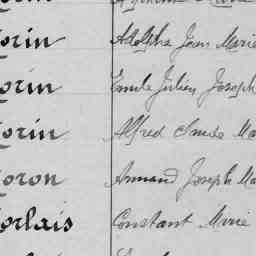 orin Adolphe Jean Marie
orin Emile Julien Joseph
orin Alfred
oron Armand Joseph Ma
orlais Constant Marie